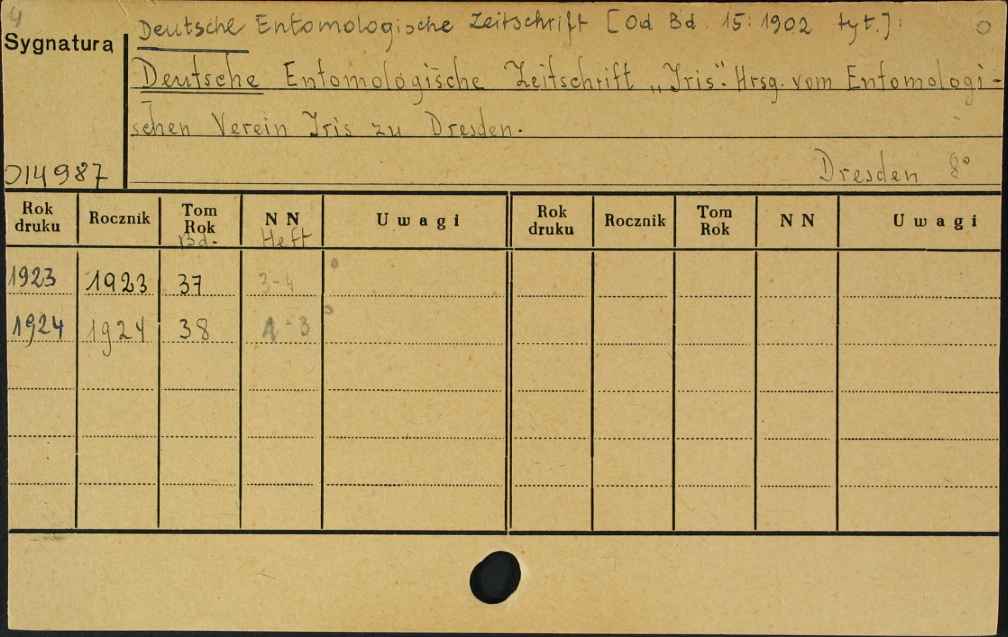 4
Deutsche Entomologische Zeitschrift [Od Bd. 15: 1902 tyt.]:
Sygnatura
Deutsche Entomologische Zeitschrift „Iris". Hrsg. vom Entomologi-
schen Verein Iris zu Dresden.
014987
Dresden 8°
Rok druku Rocznik Tom Rok Bd. NN Heft Uwagi Rok druku Rocznik Tom Rok NN Uwagi
1923 1923 37 3-4
1924 1924 38 1-3